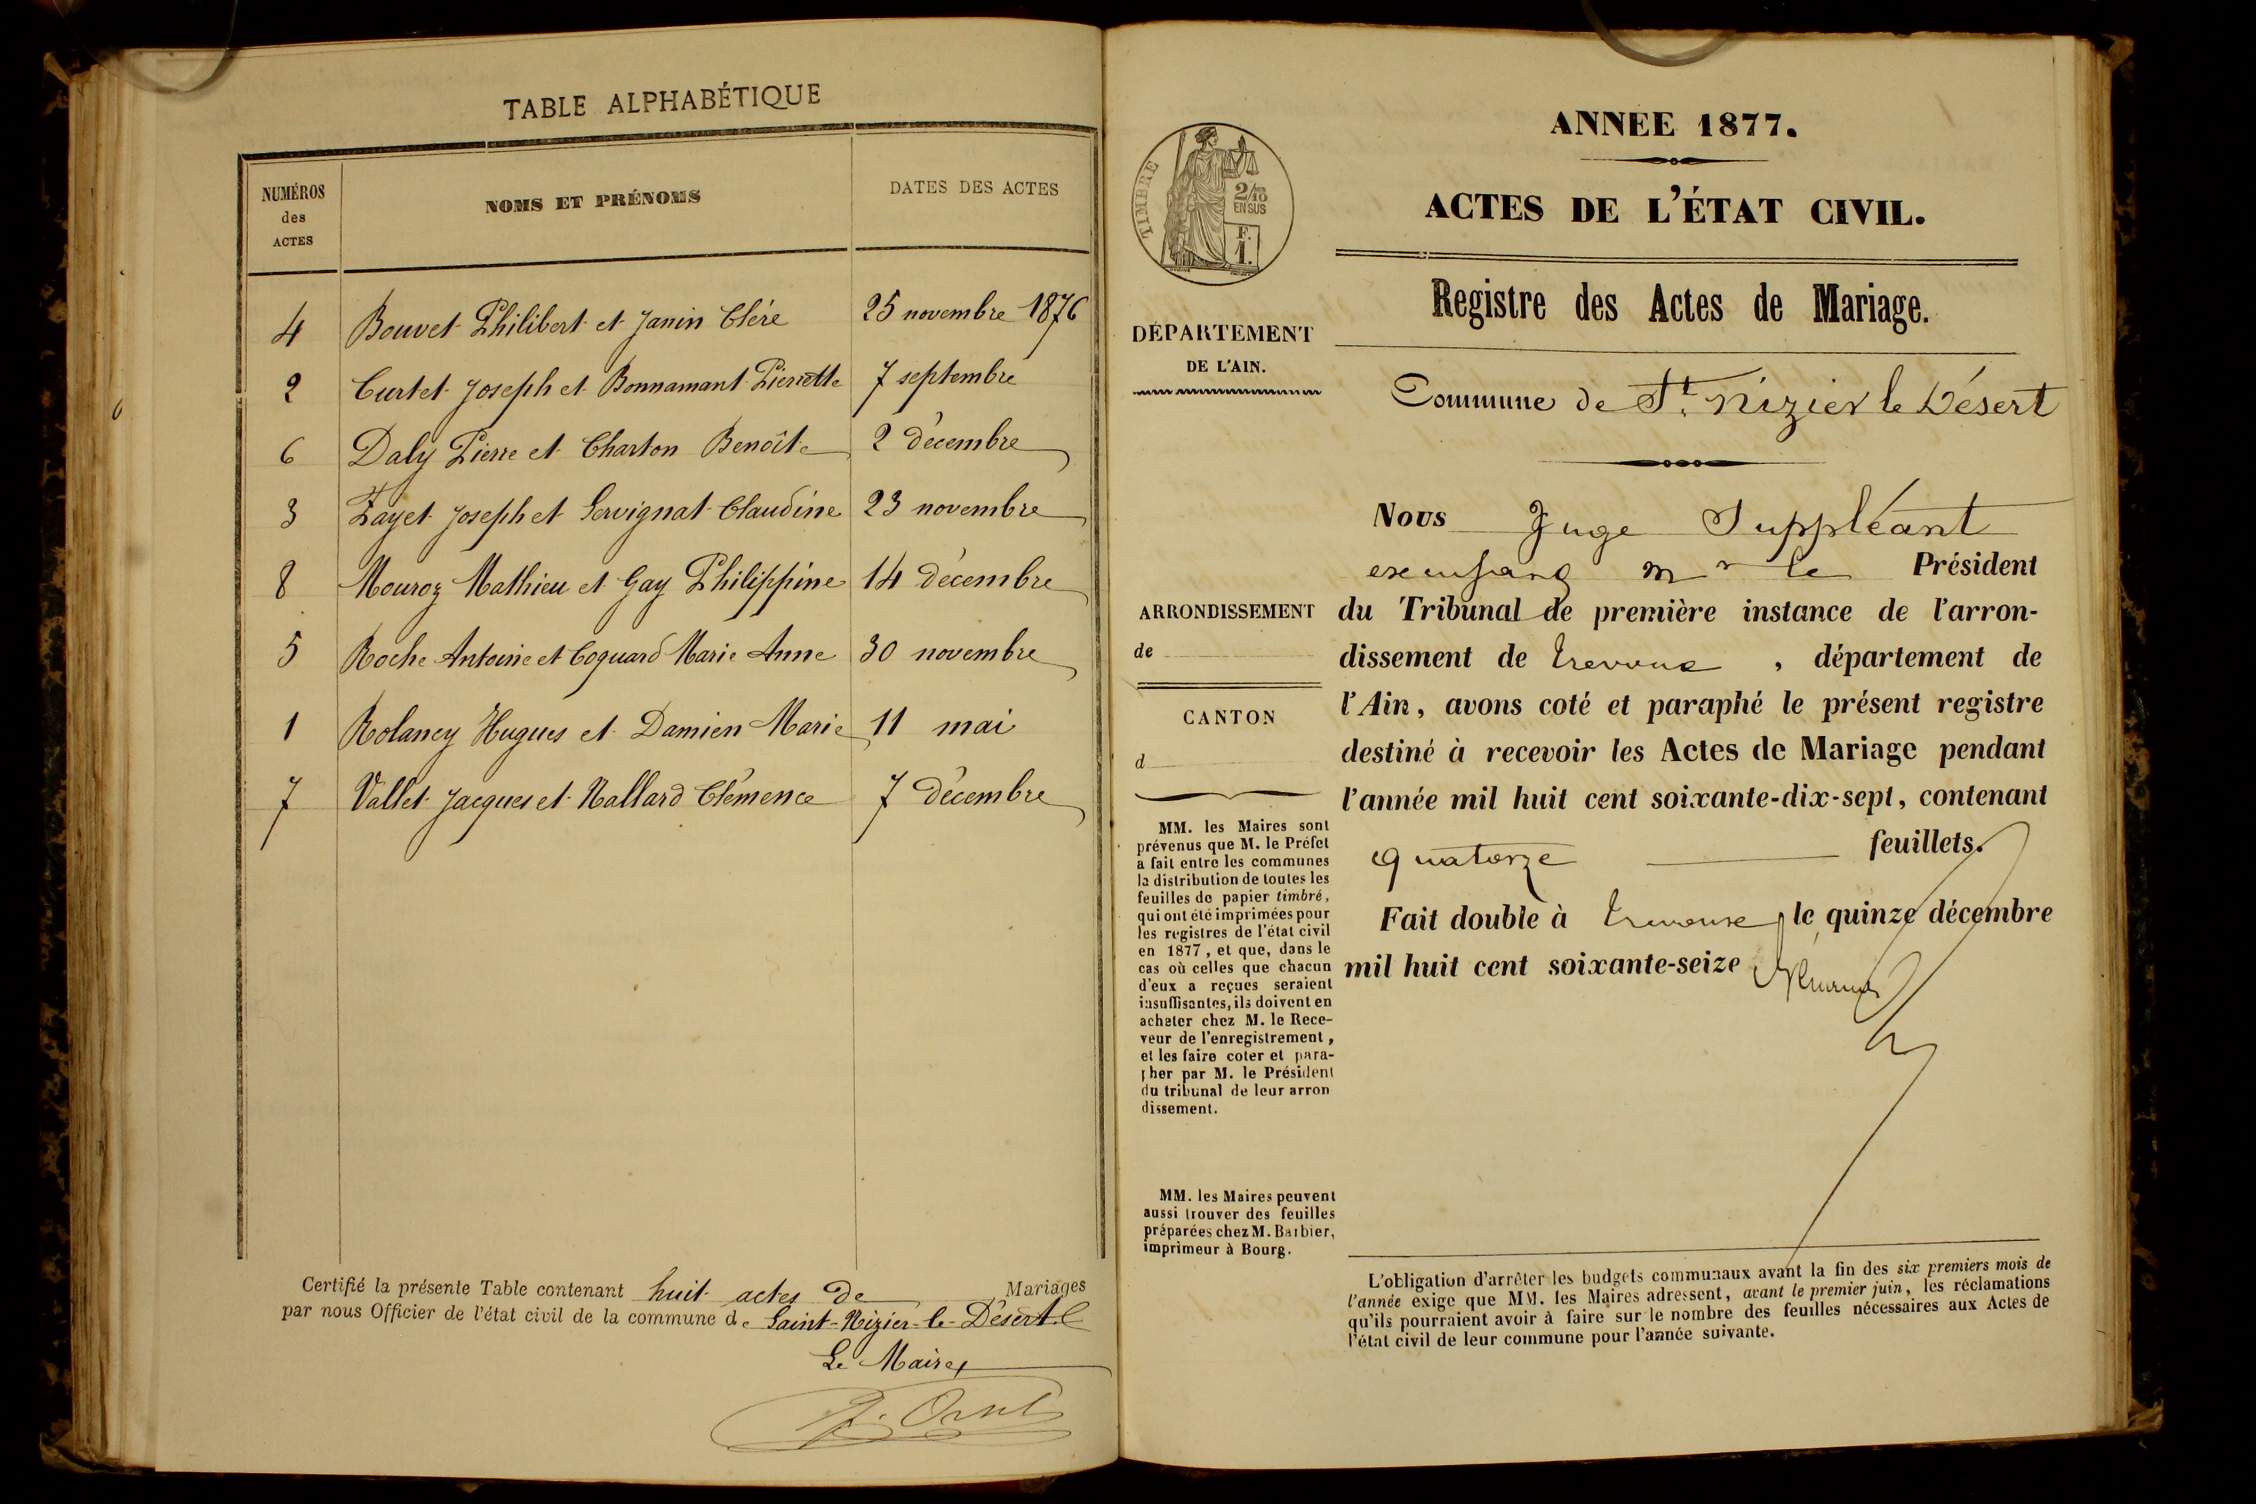 TABLE ALPHABÉTIQUE
NUMÉROS des ACTES NOMS ET PRÉNOMS DATES DES ACTES
4 Bouvet Philibert et Janin Clére 25 novembre 1876
2 Curtet Joseph et Bonnamant Pierrette 7 septembre
6 Daly Pierre et Charton Benoîte 2 décembre
3 Fayet Joseph et Servignat Claudine 23 novembre
8 Mouroz Mathieu et Gay Philippine 14 décembre
5 Roche Antoine et Coguard Marie Anne 30 novembre
1 Rolancy Hugues et Damien Marie 11 mai
7 Vallet Jacques et Nallard Clémence 7 décembre
Certifié la présente Table contenant huit actes de Mariages
par nous Officier de l'état civil de la commune de Saint-Nizier-le-Désert
Le Maire,
TIMBRE
2/10
EN SUS
F.
1.
DÉPARTEMENT
DE L'AIN.
ARRONDISSEMENT
de
CANTON
d
MM. les Maires sont
prévenus que M. le Préfet
a fait entre les communes
la distribution de toutes les
feuilles de papier timbré,
qui ont été imprimées pour
les registres de l'état civil
en 1877, et que, dans le
cas où celles que chacun
d'eux a reçues seraient
insuffisantes, ils doivent en
acheter chez M. le Rece-
veur de l'enregistrement,
et les faire coter et para-
pher par M. le Président
du tribunal de leur arron
dissement.
MM. les Maires peuvent
aussi trouver des feuilles
préparées chez M. Barbier,
imprimeur à Bourg.
ANNEE 1877.
ACTES DE L'ÉTAT CIVIL.
Registre des Actes de Mariage.
Commune de St. Nizier le Désert
Nous Juge Suppléant
Mr le Président
du Tribunal de première instance de l'arron-
dissement de Trevoux, département de
l'Ain, avons coté et paraphé le présent registre
destiné à recevoir les Actes de Mariage pendant
l'année mil huit cent soixante-dix-sept, contenant
quatorze feuillets.
Fait double à Trevoux, le quinze décembre
mil huit cent soixante-seize
L'obligation d'arrêter les budgets communaux avant la fin des six premiers mois de
l'année exige que MM. les Maires adressent, avant le premier juin, les réclamations
qu'ils pourraient avoir à faire sur le nombre des feuilles nécessaires aux Actes de
l'état civil de leur commune pour l'année suivante.